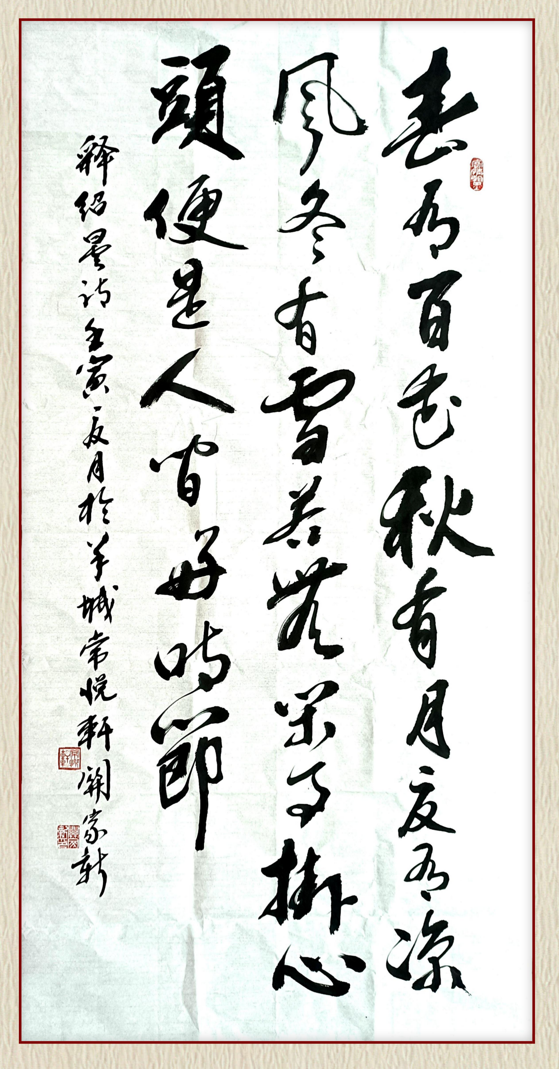 春有百花秋有月夏有凉
風冬有雪若無閑事掛心
頭便是人间好時節
释绍昙诗壬寅夏月於羊城常悦軒關家新